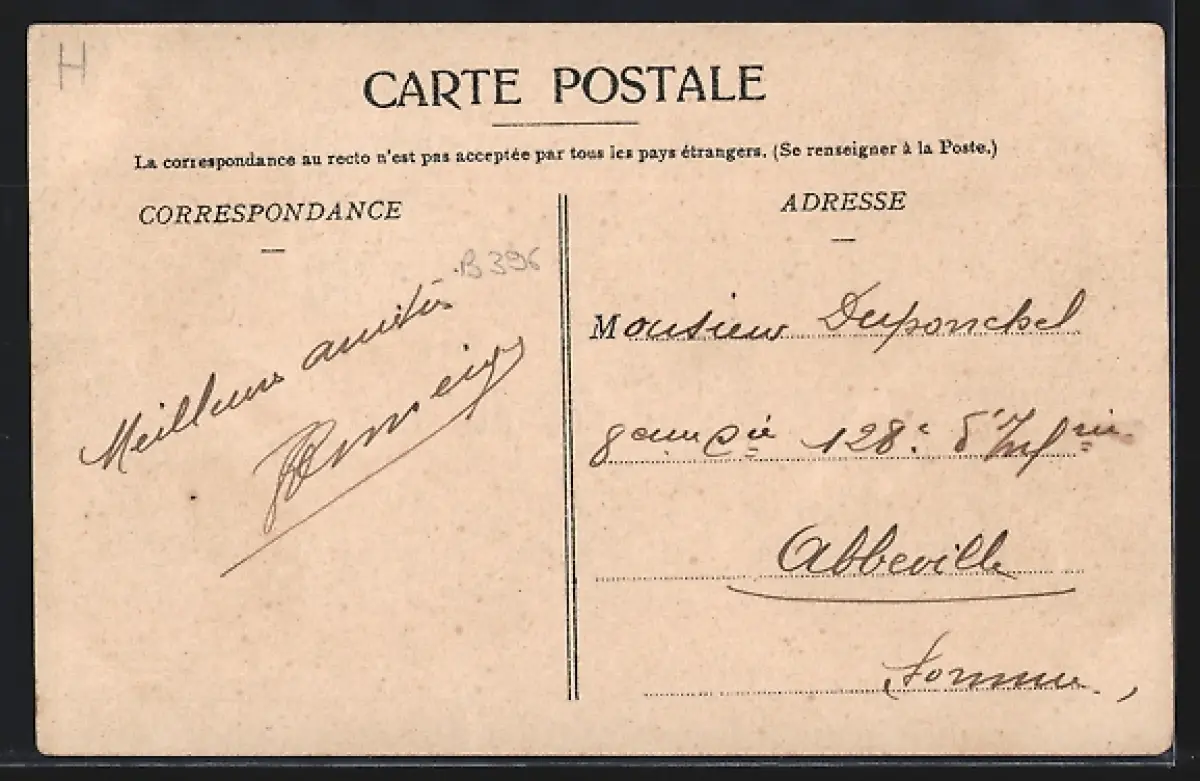 H
CARTE POSTALE
La correspondance au recto n'est pas acceptée par tous les pays étrangers. (Se renseigner à la Poste.)
CORRESPONDANCE
B396
Meilleures amitiés
ADRESSE
Monsieur Duponchel
8 em Cie 128e d'Infrie
Abbeville
Somme